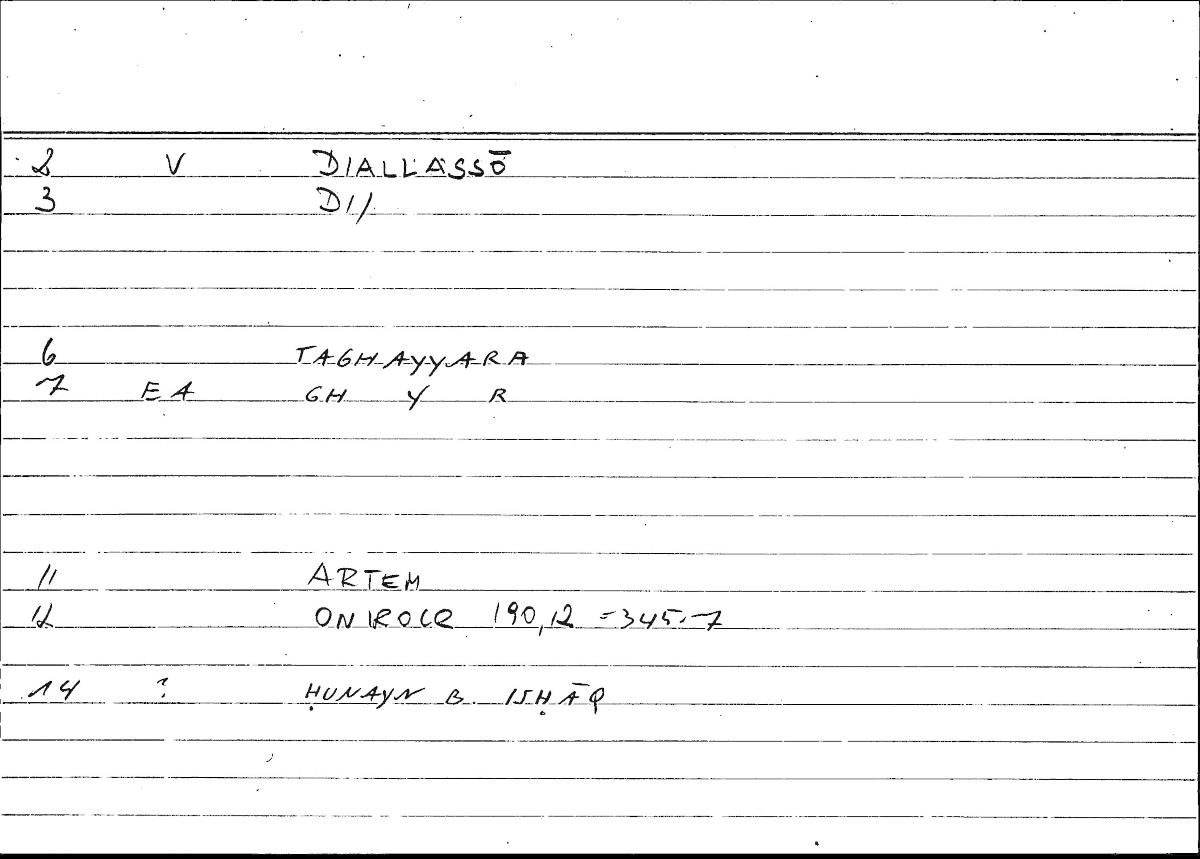 2 V DIALLASSŌ
3 DI/
6 TAGHAYYARA
7 EA GH Y R
11 ARTEM
12 ONIROCR 190,12 = 345,7
14 ? ḤUNAYN B. ISḤĀQ